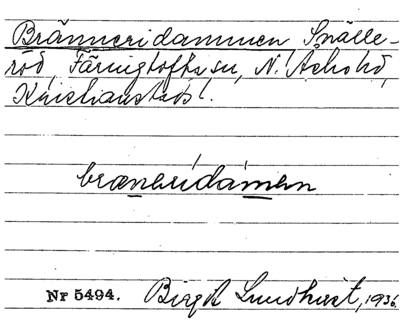 Bränneridammen Snälle-
röd, Färingtofta sn, N. Åsbo hd,
Kristianstads l.
bræneridámen
Nr 5494. Birgit Lundkvist, 1936.